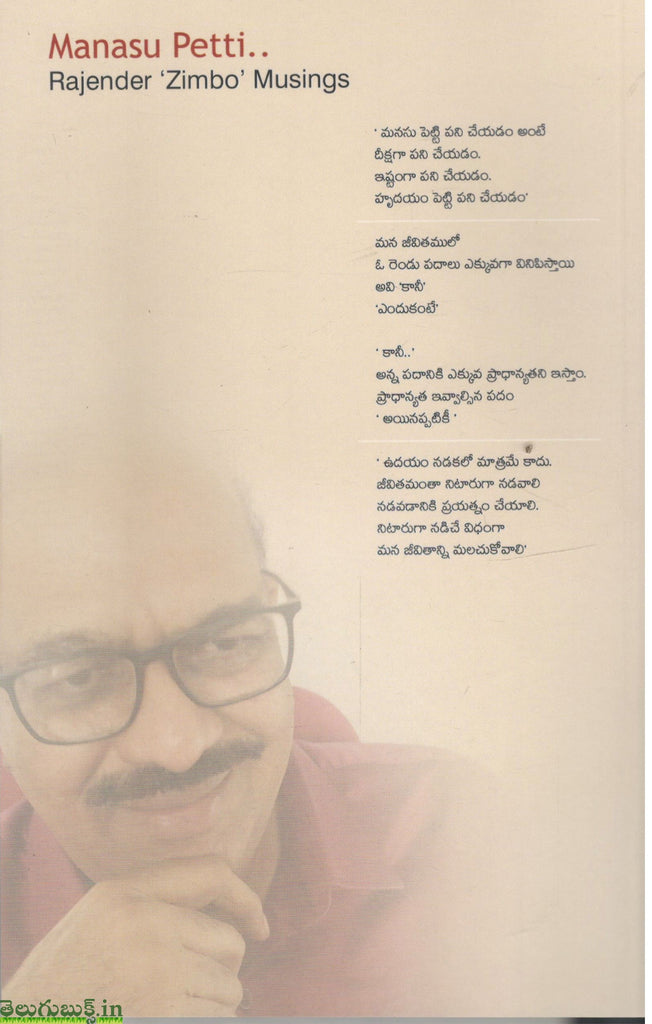 Manasu Petti..
Rajender ‘Zimbo’ Musings
‘ మనసు పెట్టి పని చేయడం అంటే
దీక్షగా పని చేయడం.
ఇష్టంగా పని చేయడం.
హృదయం పెట్టి పని చేయడం’
మన జీవితములో
ఓ రెండు పదాలు ఎక్కువగా వినిపిస్తాయి
అవి ‘కానీ’
‘ఎందుకంటే’
‘ కానీ..’
అన్న పదానికి ఎక్కువ ప్రాధాన్యతని ఇస్తాం.
ప్రాధాన్యత ఇవ్వాల్సిన పదం
‘ అయినప్పటికీ ’
‘ ఉదయం నడకలో మాత్రమే కాదు.
జీవితమంతా నిటారుగా నడవాలి
నడవడానికి ప్రయత్నం చేయాలి.
నిటారుగా నడిచే విధంగా
మన జీవితాన్ని మలచుకోవాలి’
తెలుగుబుక్స్.in